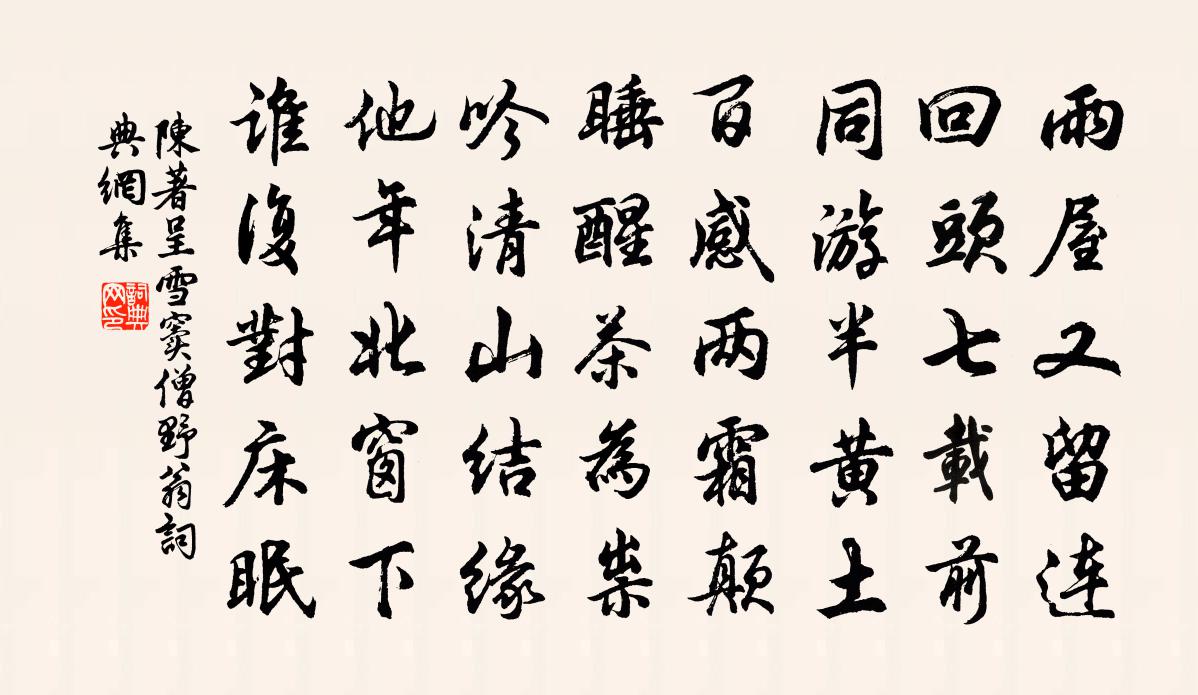 雨屋又留連
回頭七載前
同游半黄土
百感两霜顛
睡醒茶為祟
吟清山結緣
他年北窗下
誰復對床眠
陳著呈雪竇僧野翁詞
典網集
詞典
网印